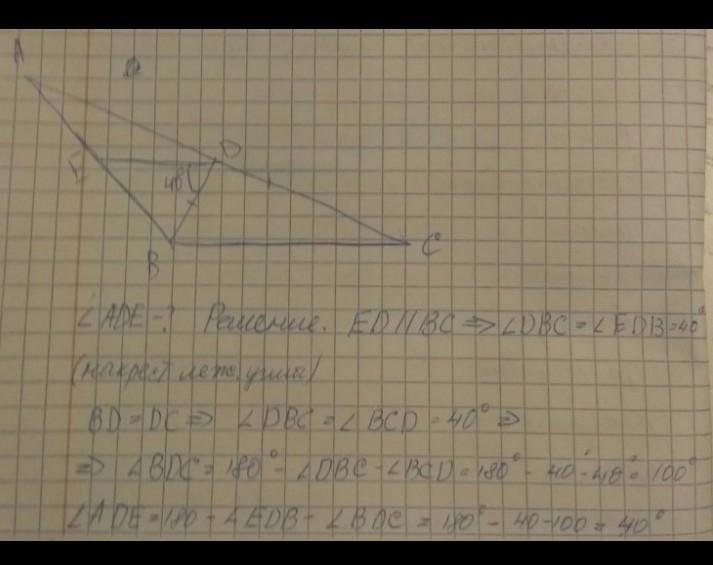 A
D
E
40°
B
C
∠ADE-? Решение. ED||BC ⇒ ∠DBC = ∠EDB = 40°
(накрест леж. углы)
BD = DC ⇒ ∠DBC = ∠BCD = 40° ⇒
⇒ ∠BDC = 180° - ∠DBC - ∠BCD = 180° - 40° - 40° = 100°
∠ADE = 180 - ∠EDB - ∠BDC = 180° - 40 - 100 = 40°